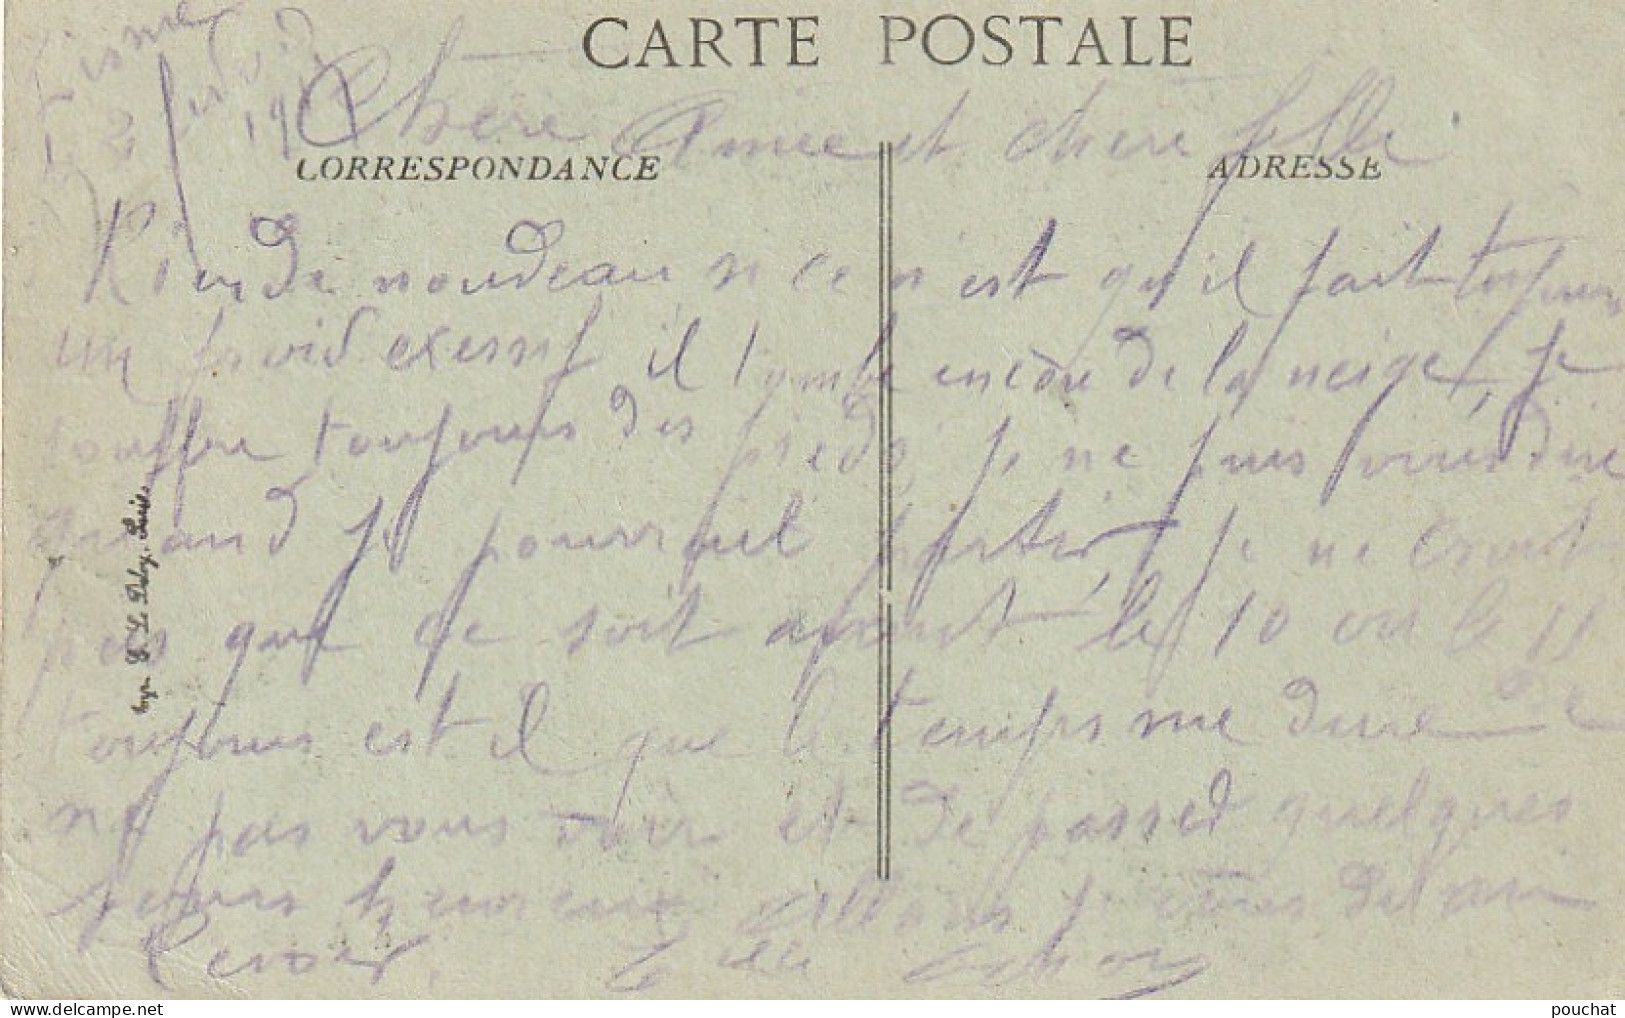 CARTE POSTALE
Fismes
Le 2
19
Chère Aimée et chère fille
CORRESPONDANCE
ADRESSE
Rien de nouveau si ce n'est qu'il fait toujours
un froid exessif il tombe encore de la neige, je
souffre toujours des pieds, je ne puis vous dire
quand je pourrait partir, je ne croit
pas que ce soit avant le 10 ou le 11
toujours est il que le temps me dure de
ne pas vous voir et de passer quelques
jours heureux Allons
revoir.
Imp. E. Le Deley, Paris
pouchat